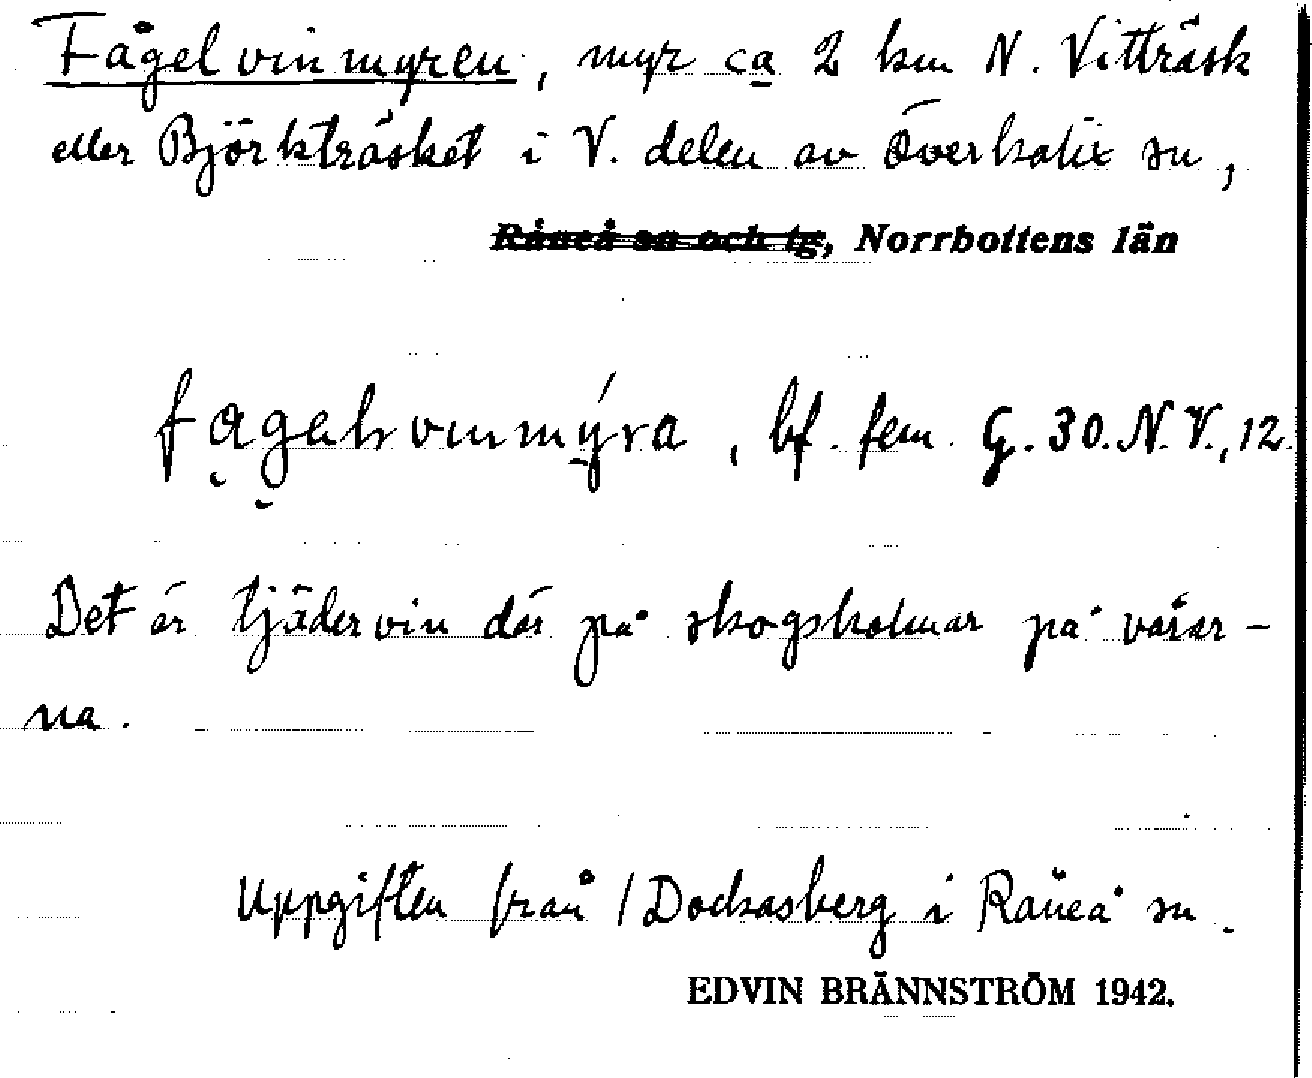 Fågelvinmyren, myr ca 2 km N. Vitträsk
eller Björkträsket i V. delen av Överkalix sn,
Råneå sn och tg, Norrbottens län
bf. fem. G. 30. N.V., 12.
Det är tjädervin där på skogsholmar på vårar-
na.
Uppgiften från / Dockasberg i Råneå sn.
EDVIN BRÄNNSTRÖM 1942.